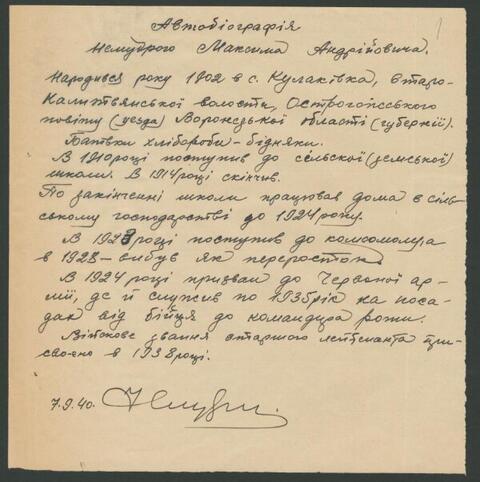 1
Автобіографія
Немудрого Максима Андрійовича.
Народився року 1902 в с. Кулаківка, Старо-
Калитвянської волости, Острогожського
повіту (уезда) Воронезької области (губернії).
Батьки хлібороби – бідняки.
В 1910 році поступив до сельскої (земської)
школи. В 1914 році скінчив.
По закінченні школи працював дома в сіль-
ському господарстві до 1924 року.
В 1923 році поступив до комсомолу, а
в 1928 – вибув як переросток.
В 1924 році призван до Червоної ар-
мії, де й служив по 1935 рік на поса-
дах від бійця до командира роти.
Військове звання старшого лейтенанта при-
своєно в 1938 році.
7.9.40.